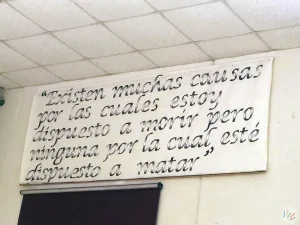 “Existen muchas causas
por las cuales estoy
dispuesto a morir pero
ninguna por la cual esté
dispuesto a matar”